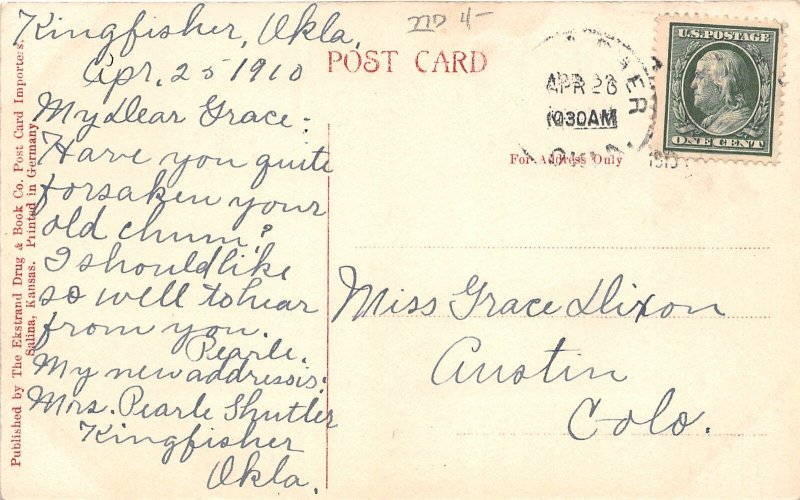 Kingfisher, Okla.
Apr. 25 1910
My Dear Grace:
Have you quite
forsaken your
old chum?
I should like
so well to hear
from you.
Pearle.
My new address is:
Mrs. Pearle Shutler
Kingfisher
Okla.
POST CARD
For Address Only
Miss Grace Dixon
Austin
Colo.
APR 26
1030AM
OKLA.
1910
U.S. POSTAGE
ONE CENT
Published by The Ekstrand Drug & Book Co. Post Card Importers,
Salina, Kansas. Printed in Germany